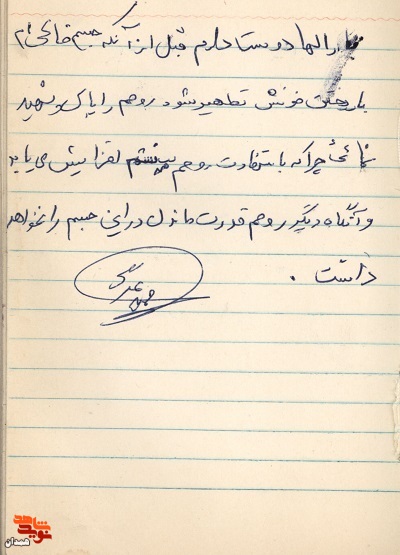 بارالها دوست دارم قبل از آنکه جسم خاکی ام
با خونش تطهیر شود روحم را پاک و شهید
نمائی چرا که با شهادت روحم بینشم افزایش می یابد
و آنگاه دیگر روحم قدرت ماندن در این جسم را نخواهد
داشت .
شاهد
نوید
همدان